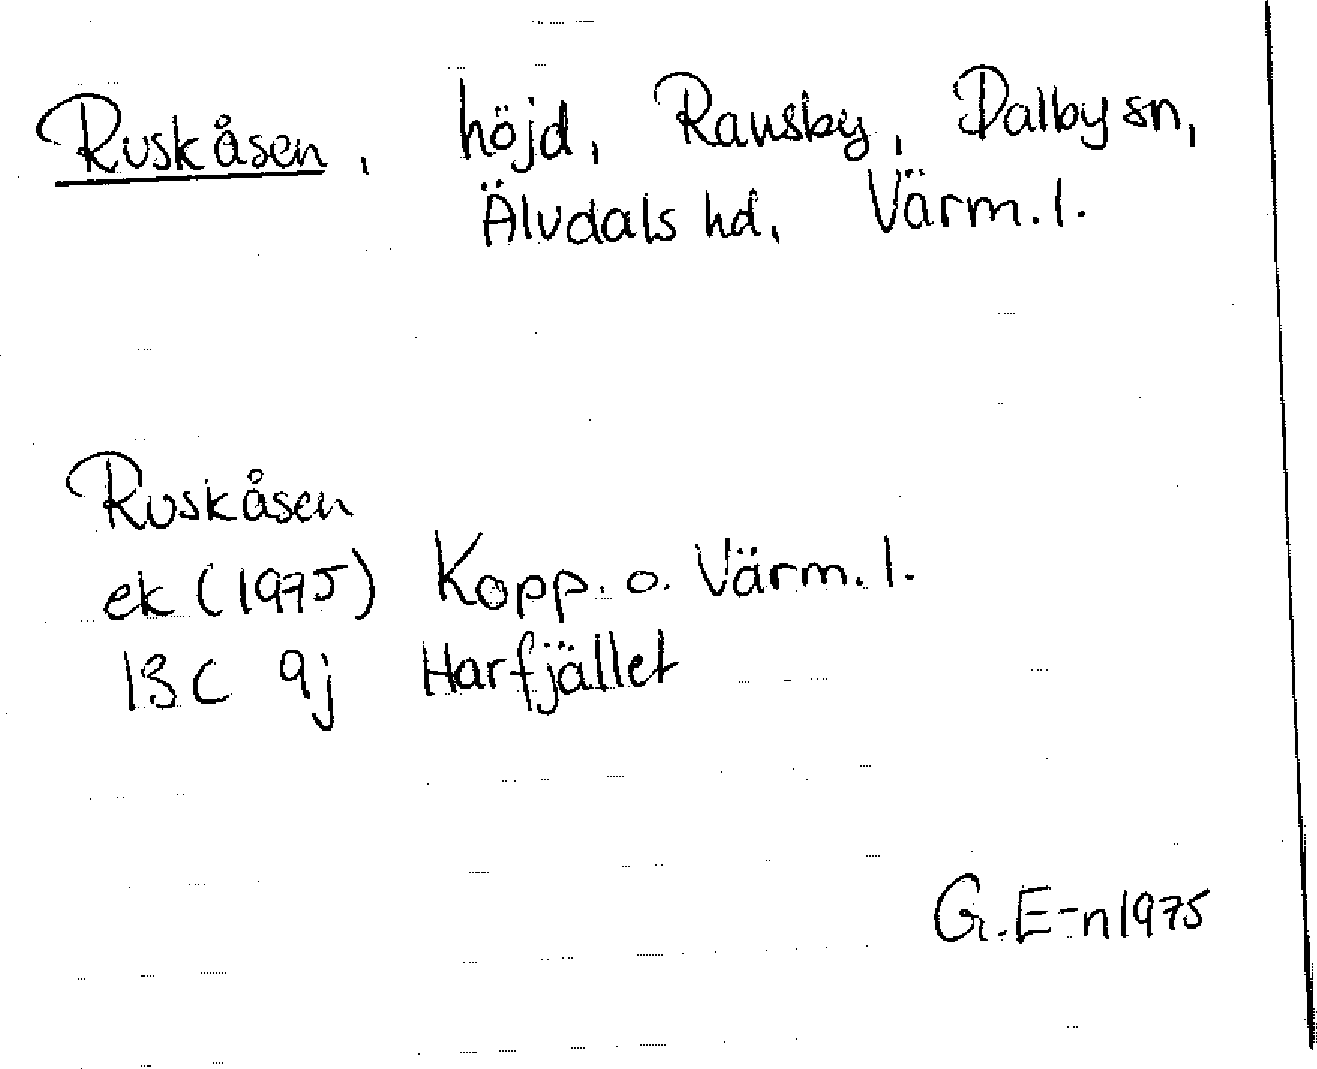 Ruskåsen, höjd, Ransby, Dalby sn,
Älvdals hd, Värm. l.
Ruskåsen
ek (1975) Kopp. o. Värm. l.
13 C 9j Harfjället
G. E-n 1975